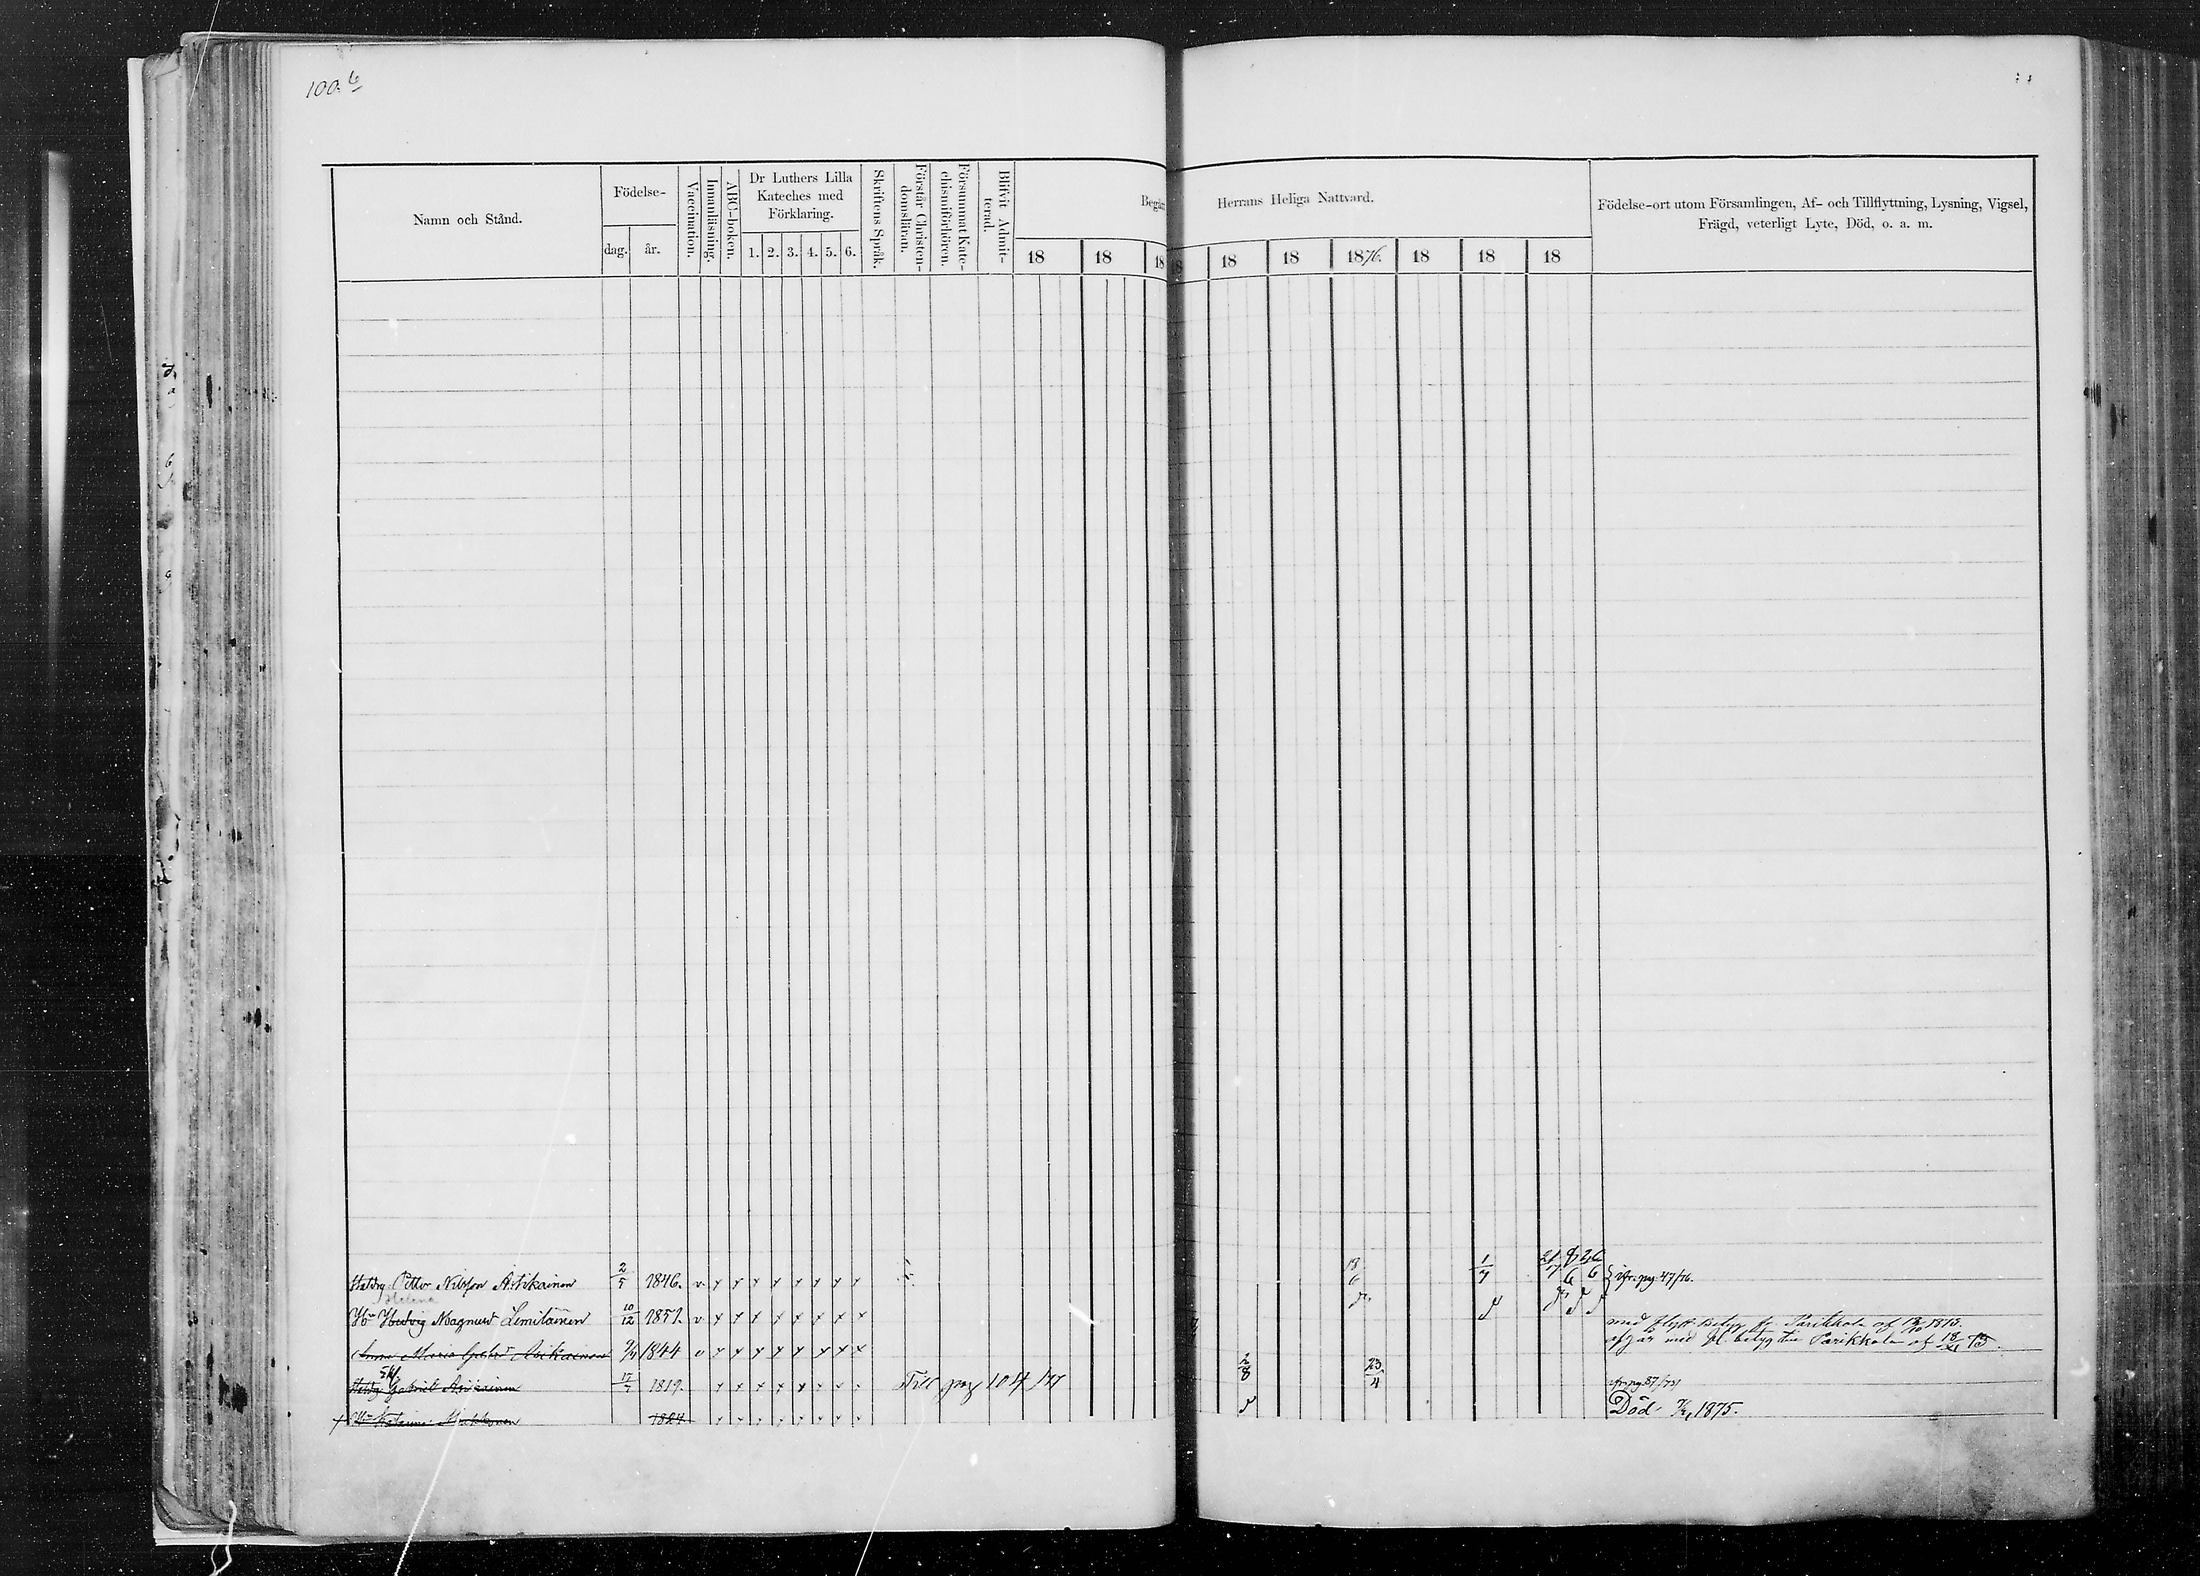 100. b
Namn och Stånd.
Födelse-
dag.
år.
Vaccination.
Innanläsning.
ABC-boken.
Dr Luthers Lilla
Kateches med
Förklaring.
1. 2. 3. 4. 5. 6.
Skriftens Språk.
Förstår Christen-
domsläran.
Försummat Kate-
chismiförhören.
Blifvit Admit-
terad.
Begår
Herrans Heliga Nattvard.
18 18 18 18 18 18 1876. 18 18 18
Födelse-ort utom Församlingen, Af- och Tillflyttning, Lysning, Vigsel,
Frägd, veterligt Lyte, Död, o. a. m.
Petter Nilsson Asikainen 2/5 1846. v x x x x x x x x 18/6 1/7 pag. 47/76.
Helena
Hu Hedvig Magnusd Lemitäinen 10/12 1851. v x x x x x x x x x
med flytt betyg fr Parikkala af 1873.
Anna Maria Asikainen 1844 v x x x x x x x x
afgår med fl. betyg till Parikkala af 18/XI 73.
Gabriel Asikainen 17/7 1819. x x x x x x x x Till pag 104/77 2/8 23/4
Hu Katarina 1824 x x x x x x x x Död 1875.